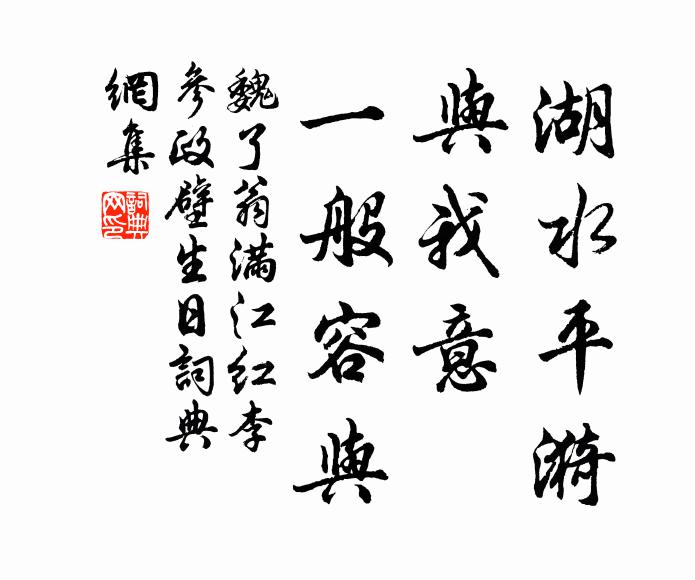 湖水平漪
與我意
一般容與
魏了翁满江红李
參政壁生日詞典
網集
詞典網印